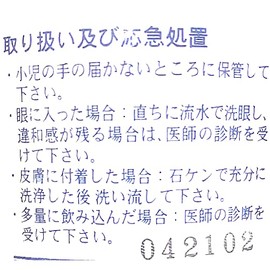 取り扱い及び応急処置
・小児の手の届かないところに保管して
下さい。
・眼に入った場合：直ちに流水で洗眼し、
違和感が残る場合は、医師の診断を受
けて下さい。
・皮膚に付着した場合：石ケンで充分に
洗浄した後 洗い流して下さい。
・多量に飲み込んだ場合：医師の診断を
受けて下さい。
042102